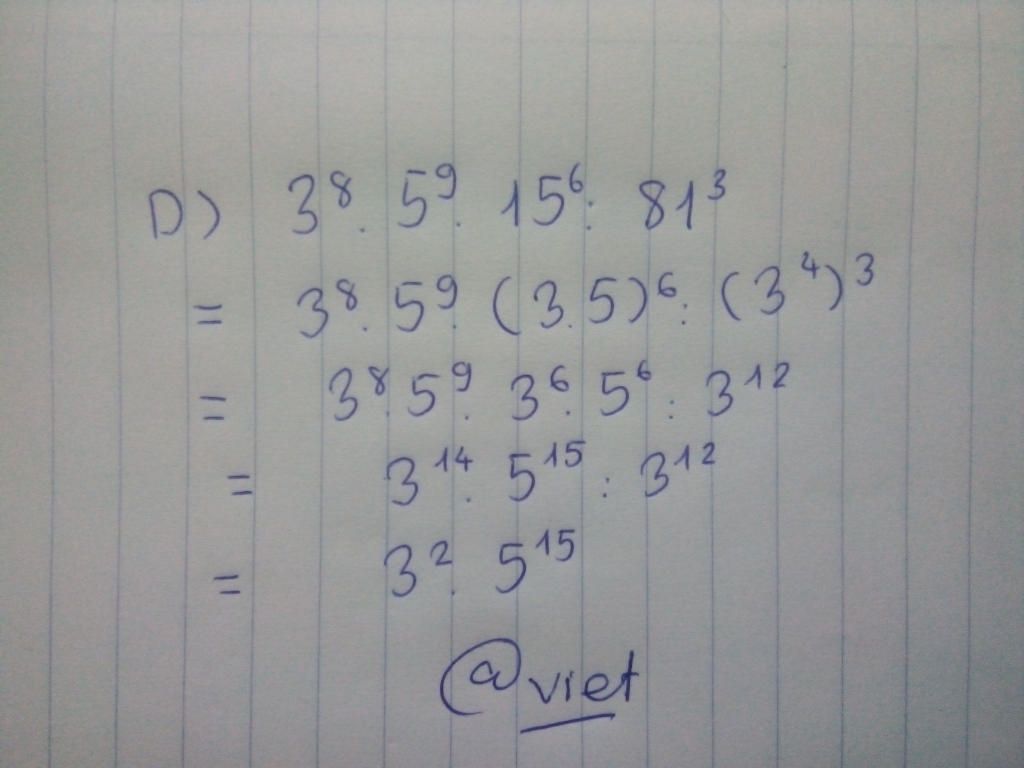 D) 3⁸. 5⁹. 15⁶: 81³
= 3⁸. 5⁹. (3.5)⁶: (3⁴)³
= 3⁸. 5⁹. 3⁶. 5⁶ : 3¹²
= 3¹⁴. 5¹⁵ : 3¹²
= 3². 5¹⁵
@viet